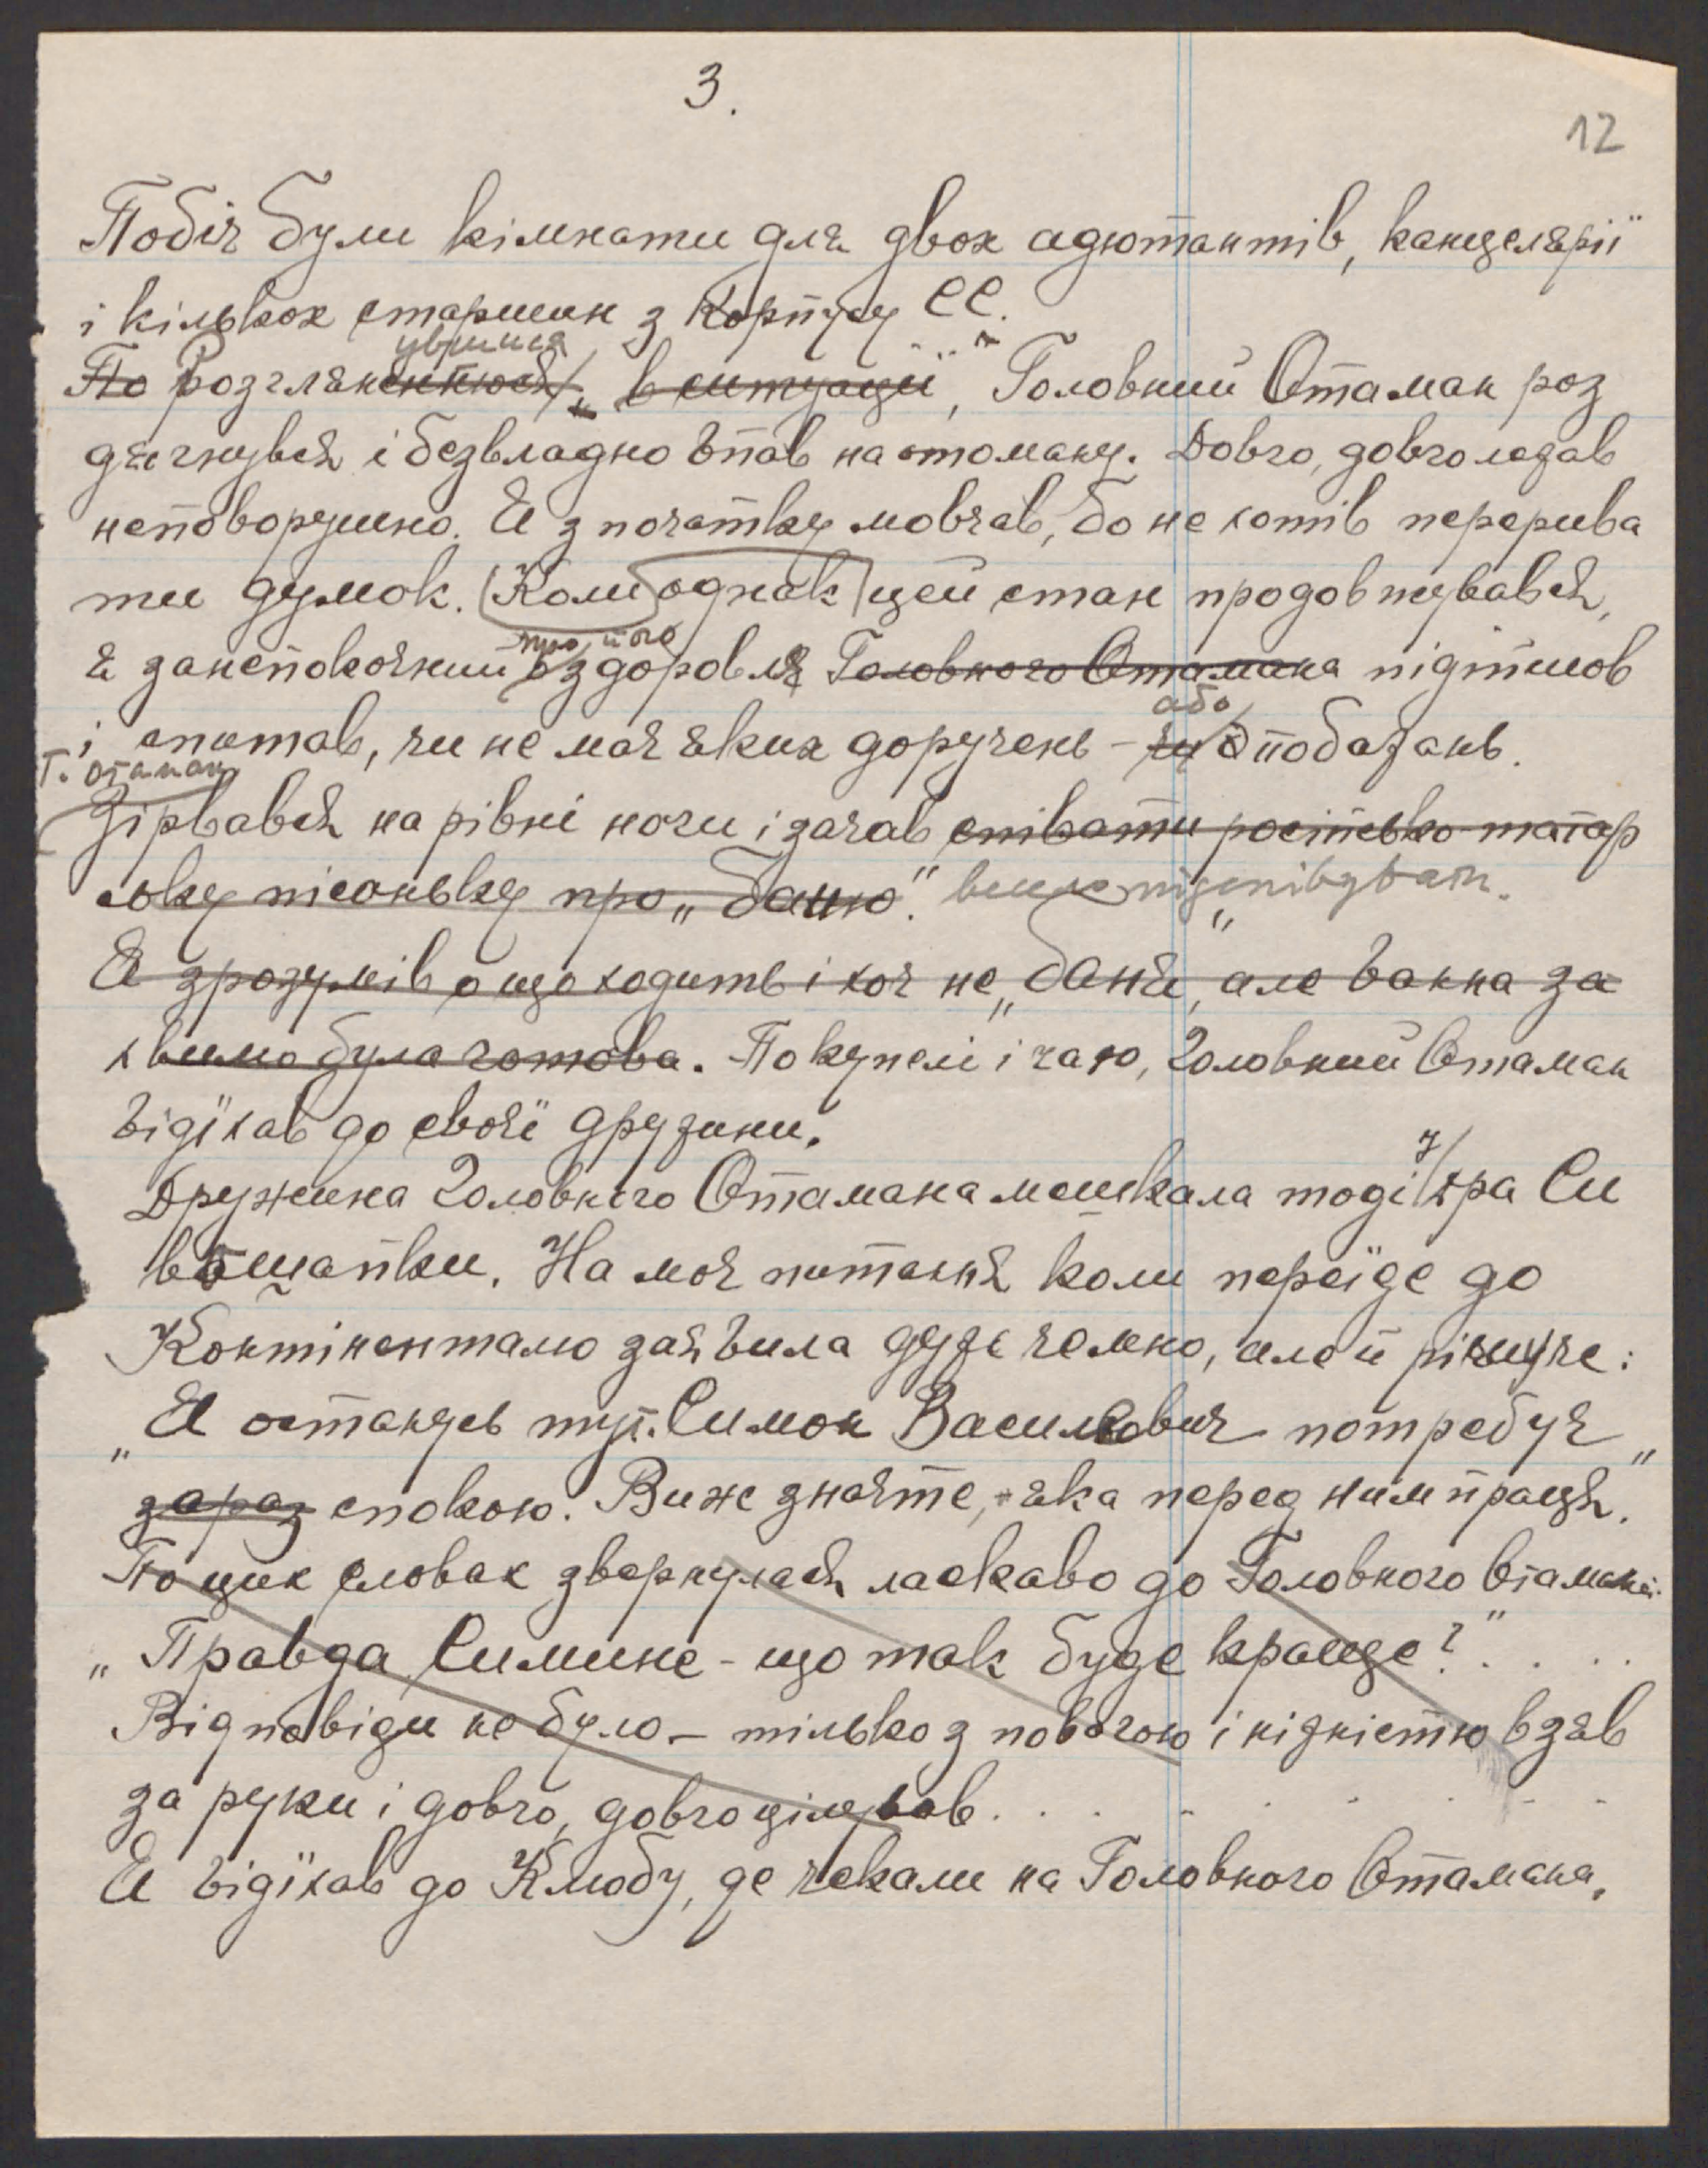 3.
12
Побіч були кімнати для двох адютантів, канцелярії
і кількох старшин з Корпусу СС.
увшися
По Розгляненнюся в ситуації, Головний Отаман роз
дягнувся і безвладно впав на отоману. Довго, довго лежав
неповорушно. Я з початку мовчав, бо не хотів перерива
ти думок. Коли однак цей стан продовжувався,
про його
я занепокоєний о здоровля Головного Отамана підійшов
або
і спитав, чи не має яких доручень – чи побажань.
Г. Отаман
Зірвався на рівні ноги і зачав співати російсько-татар
ську пісоньку про „баню". весело підспівувати.
Я зрозумів о що ходить і хоч не „баня", але ванна за
хвилю була готова. По купелі і чаю, Головний Отаман
відїхав до своєї дружини.
Дружина Головного Отамана мешкала тоді у дра Си
вошапки. На моє питання коли переїде до
Контіненталю заявила дуже чемно, але й рішуче:
„Я останусь тут. Симон Васильович потребує
зараз спокою. Ви же знаєте, яка перед ним праця."
По цих словах звернулася ласкаво до Головного Отамана:
„Правда Симине – що так буде краще?" . . . .
Відповіди не було – тілько з повагою і ніжністю взяв
за руки і довго, довго цілував. . . . . . . .
Я відїхав до Клюбу, де чекали на Головного Отамана.